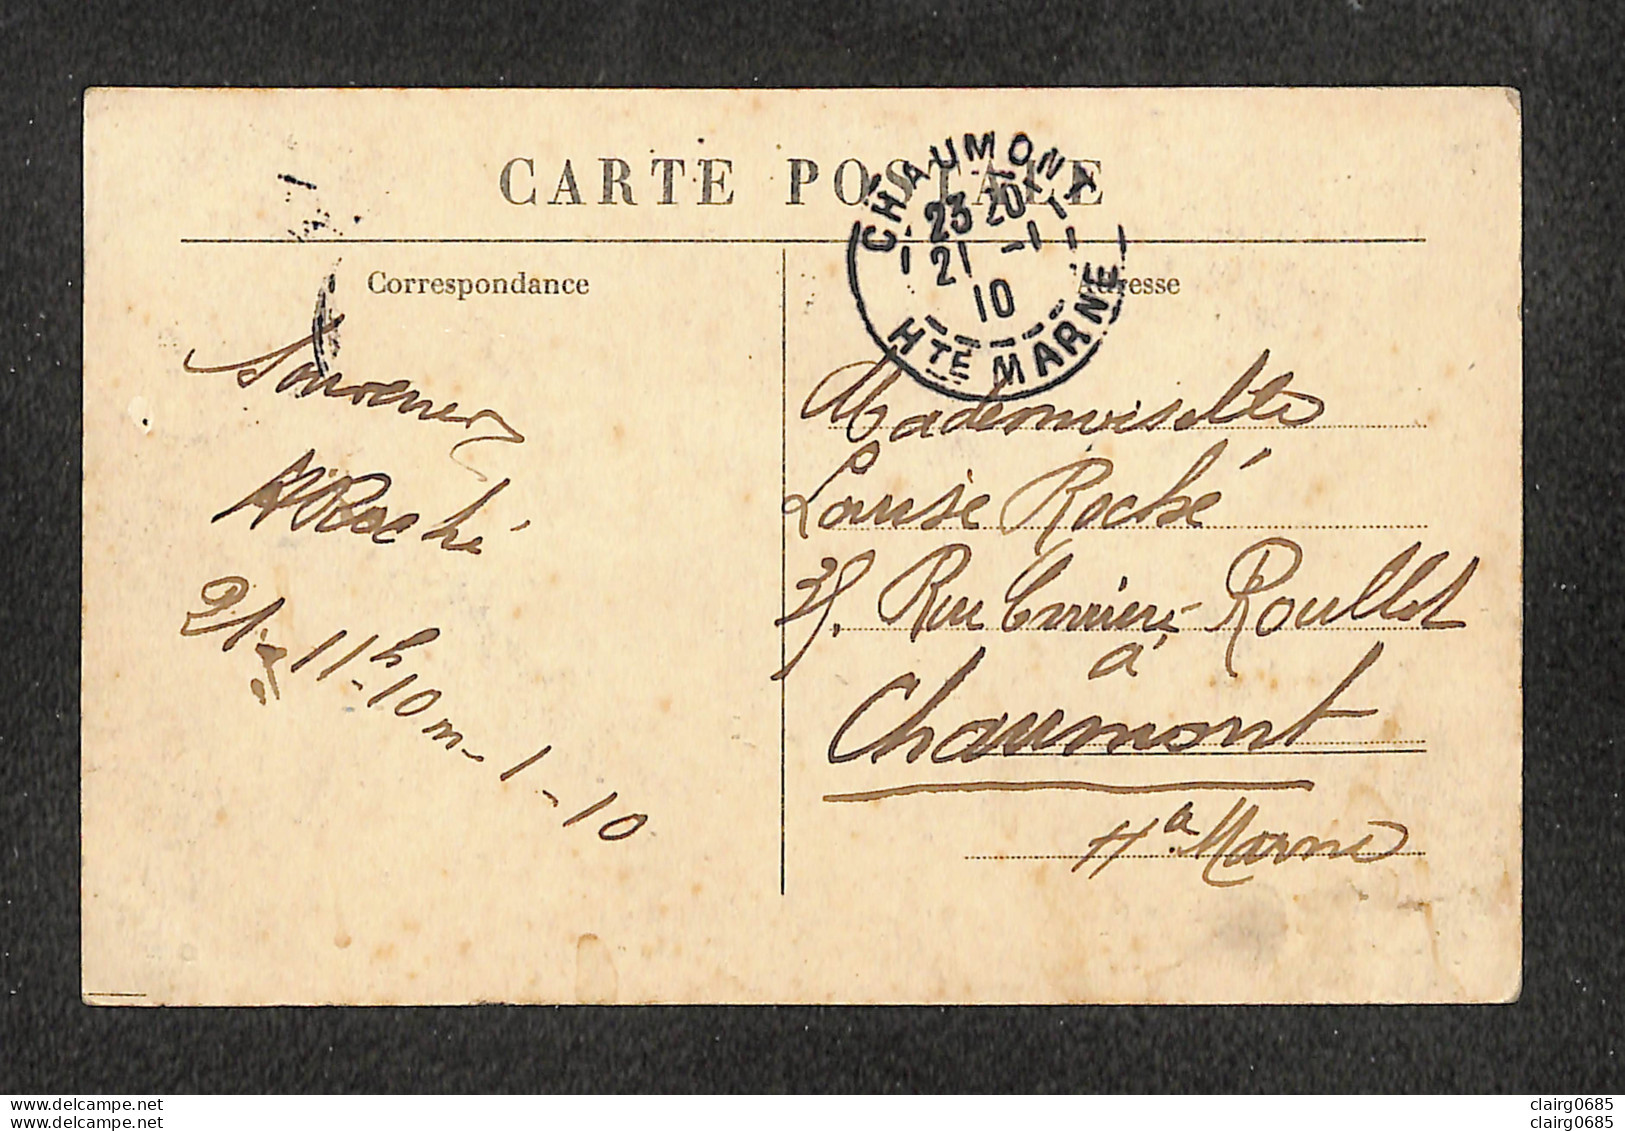 CARTE POSTALE
CHAUMONT
23 20
21 -1
10
HTE MARNE
Correspondance
Adresse
Souvenirs
Roché
21 - 11h 10m - 1 - 10
Mademoiselle
Louise Roché
35, Rue Roullot
à
Chaumont
Hte Marne
delcampe.net
clairg0685
delcampe.net
clairg0685